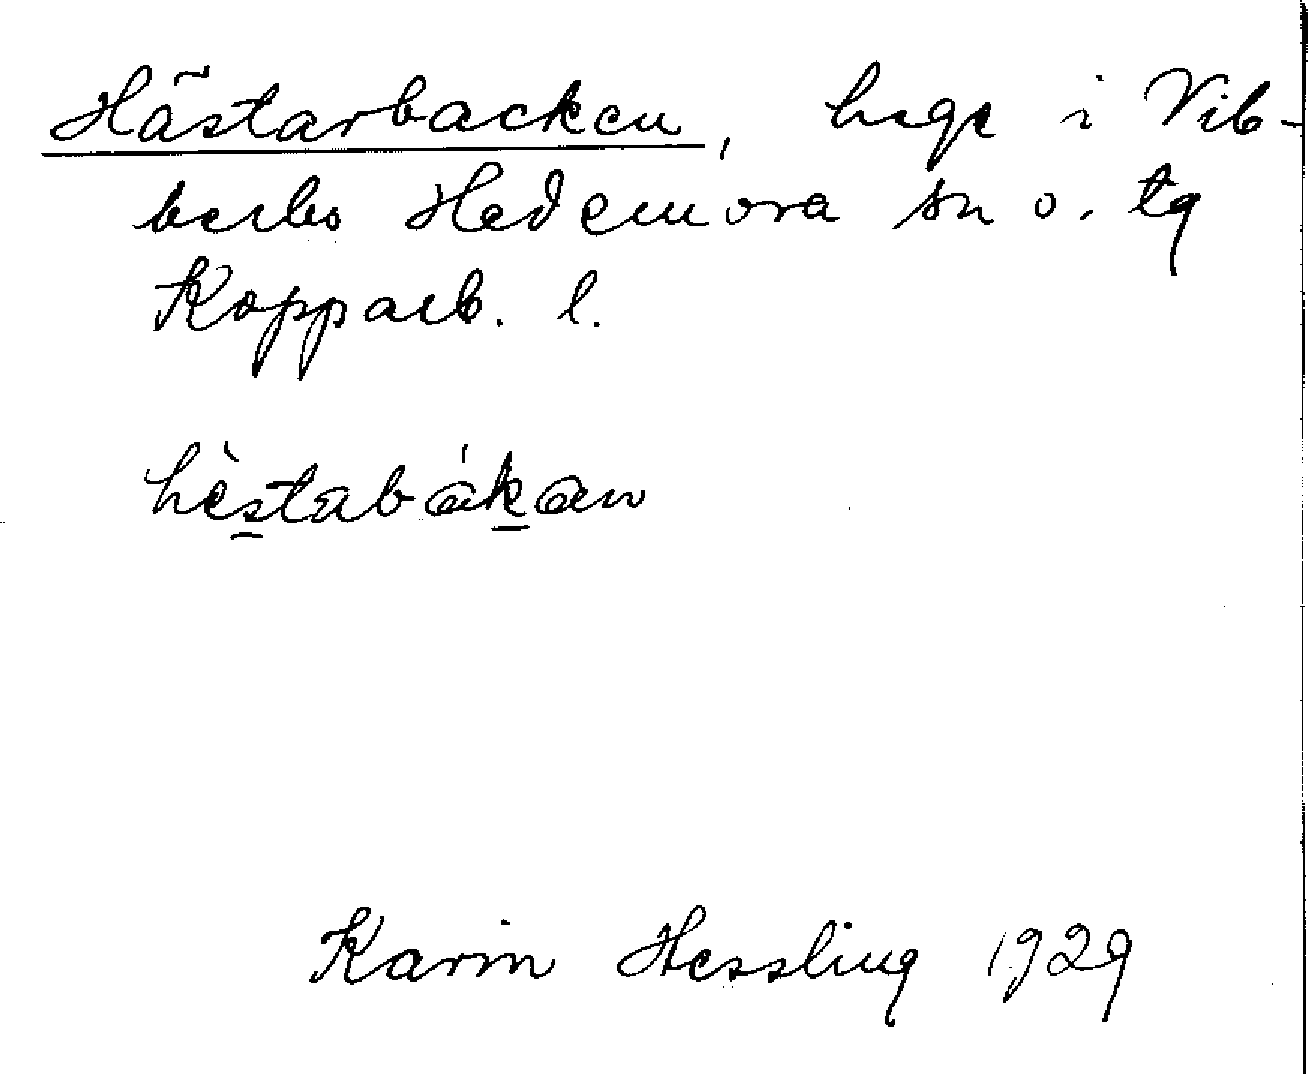 Hästarbacken, hage i Vib-
berbo Hedemora sn o. tg
Kopparb. l.
hèstabákan
Karin Hessling 1929